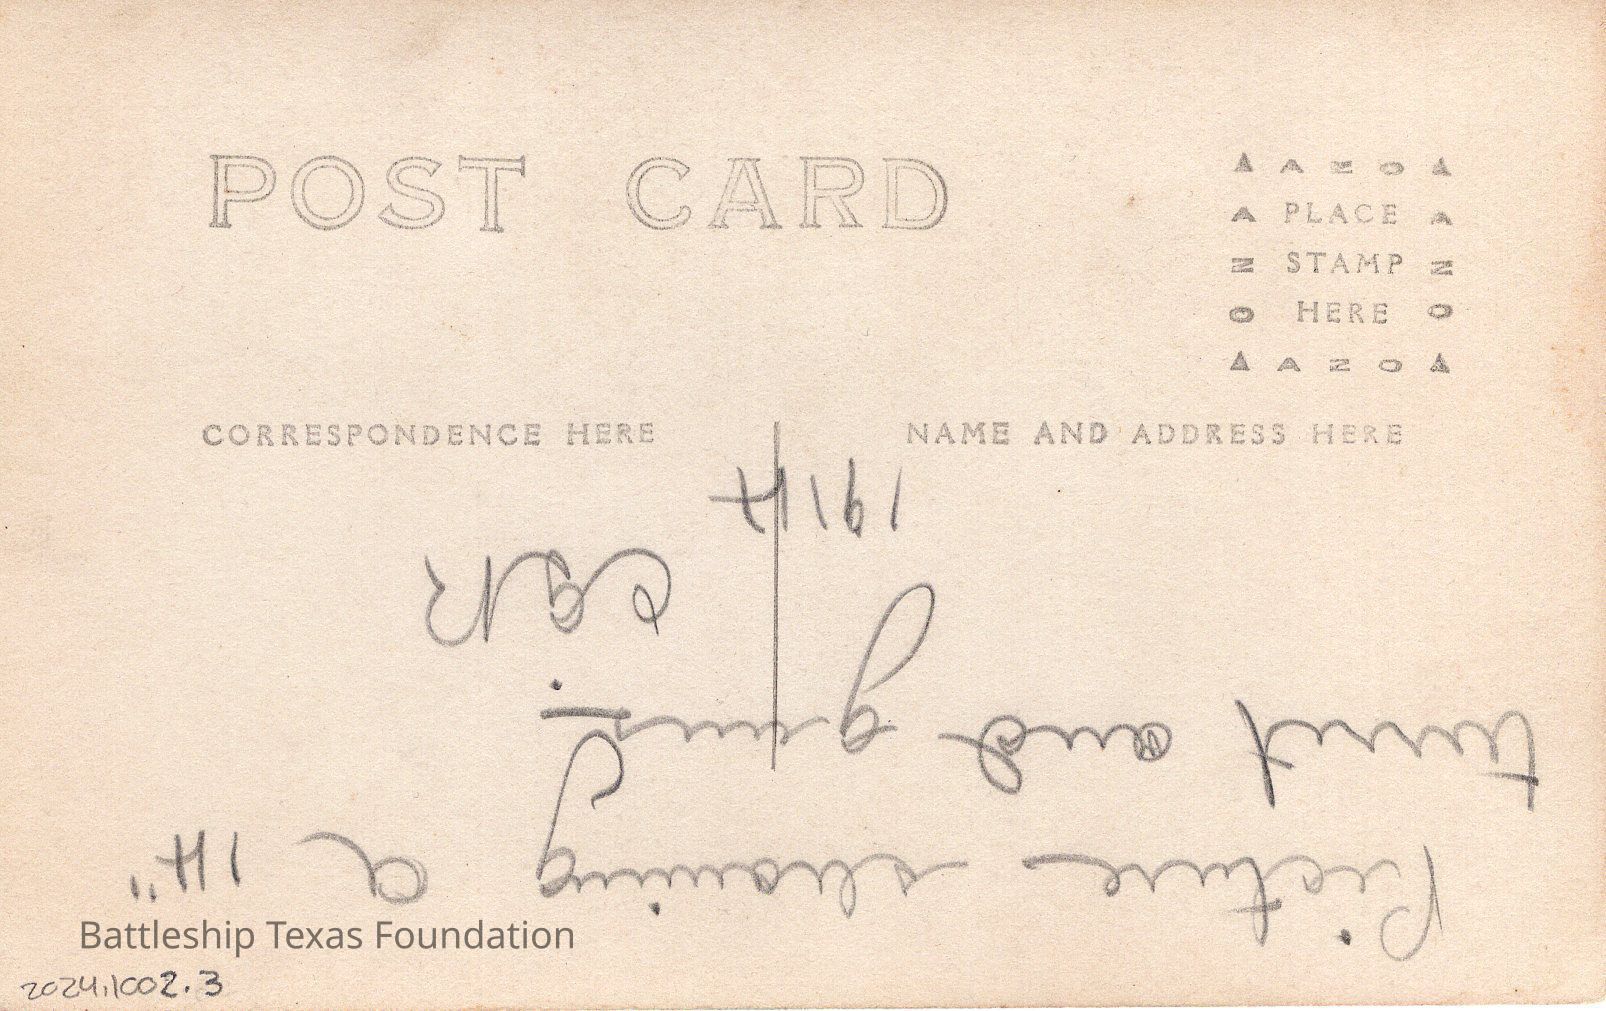 POST CARD
▲ A Z O ▲
A PLACE A
Z STAMP Z
O HERE O
▲ A Z O ▲
CORRESPONDENCE HERE
NAME AND ADDRESS HERE
Picture showing a 14"
turret and guns.
1914
Battleship Texas Foundation
2024.1002.3